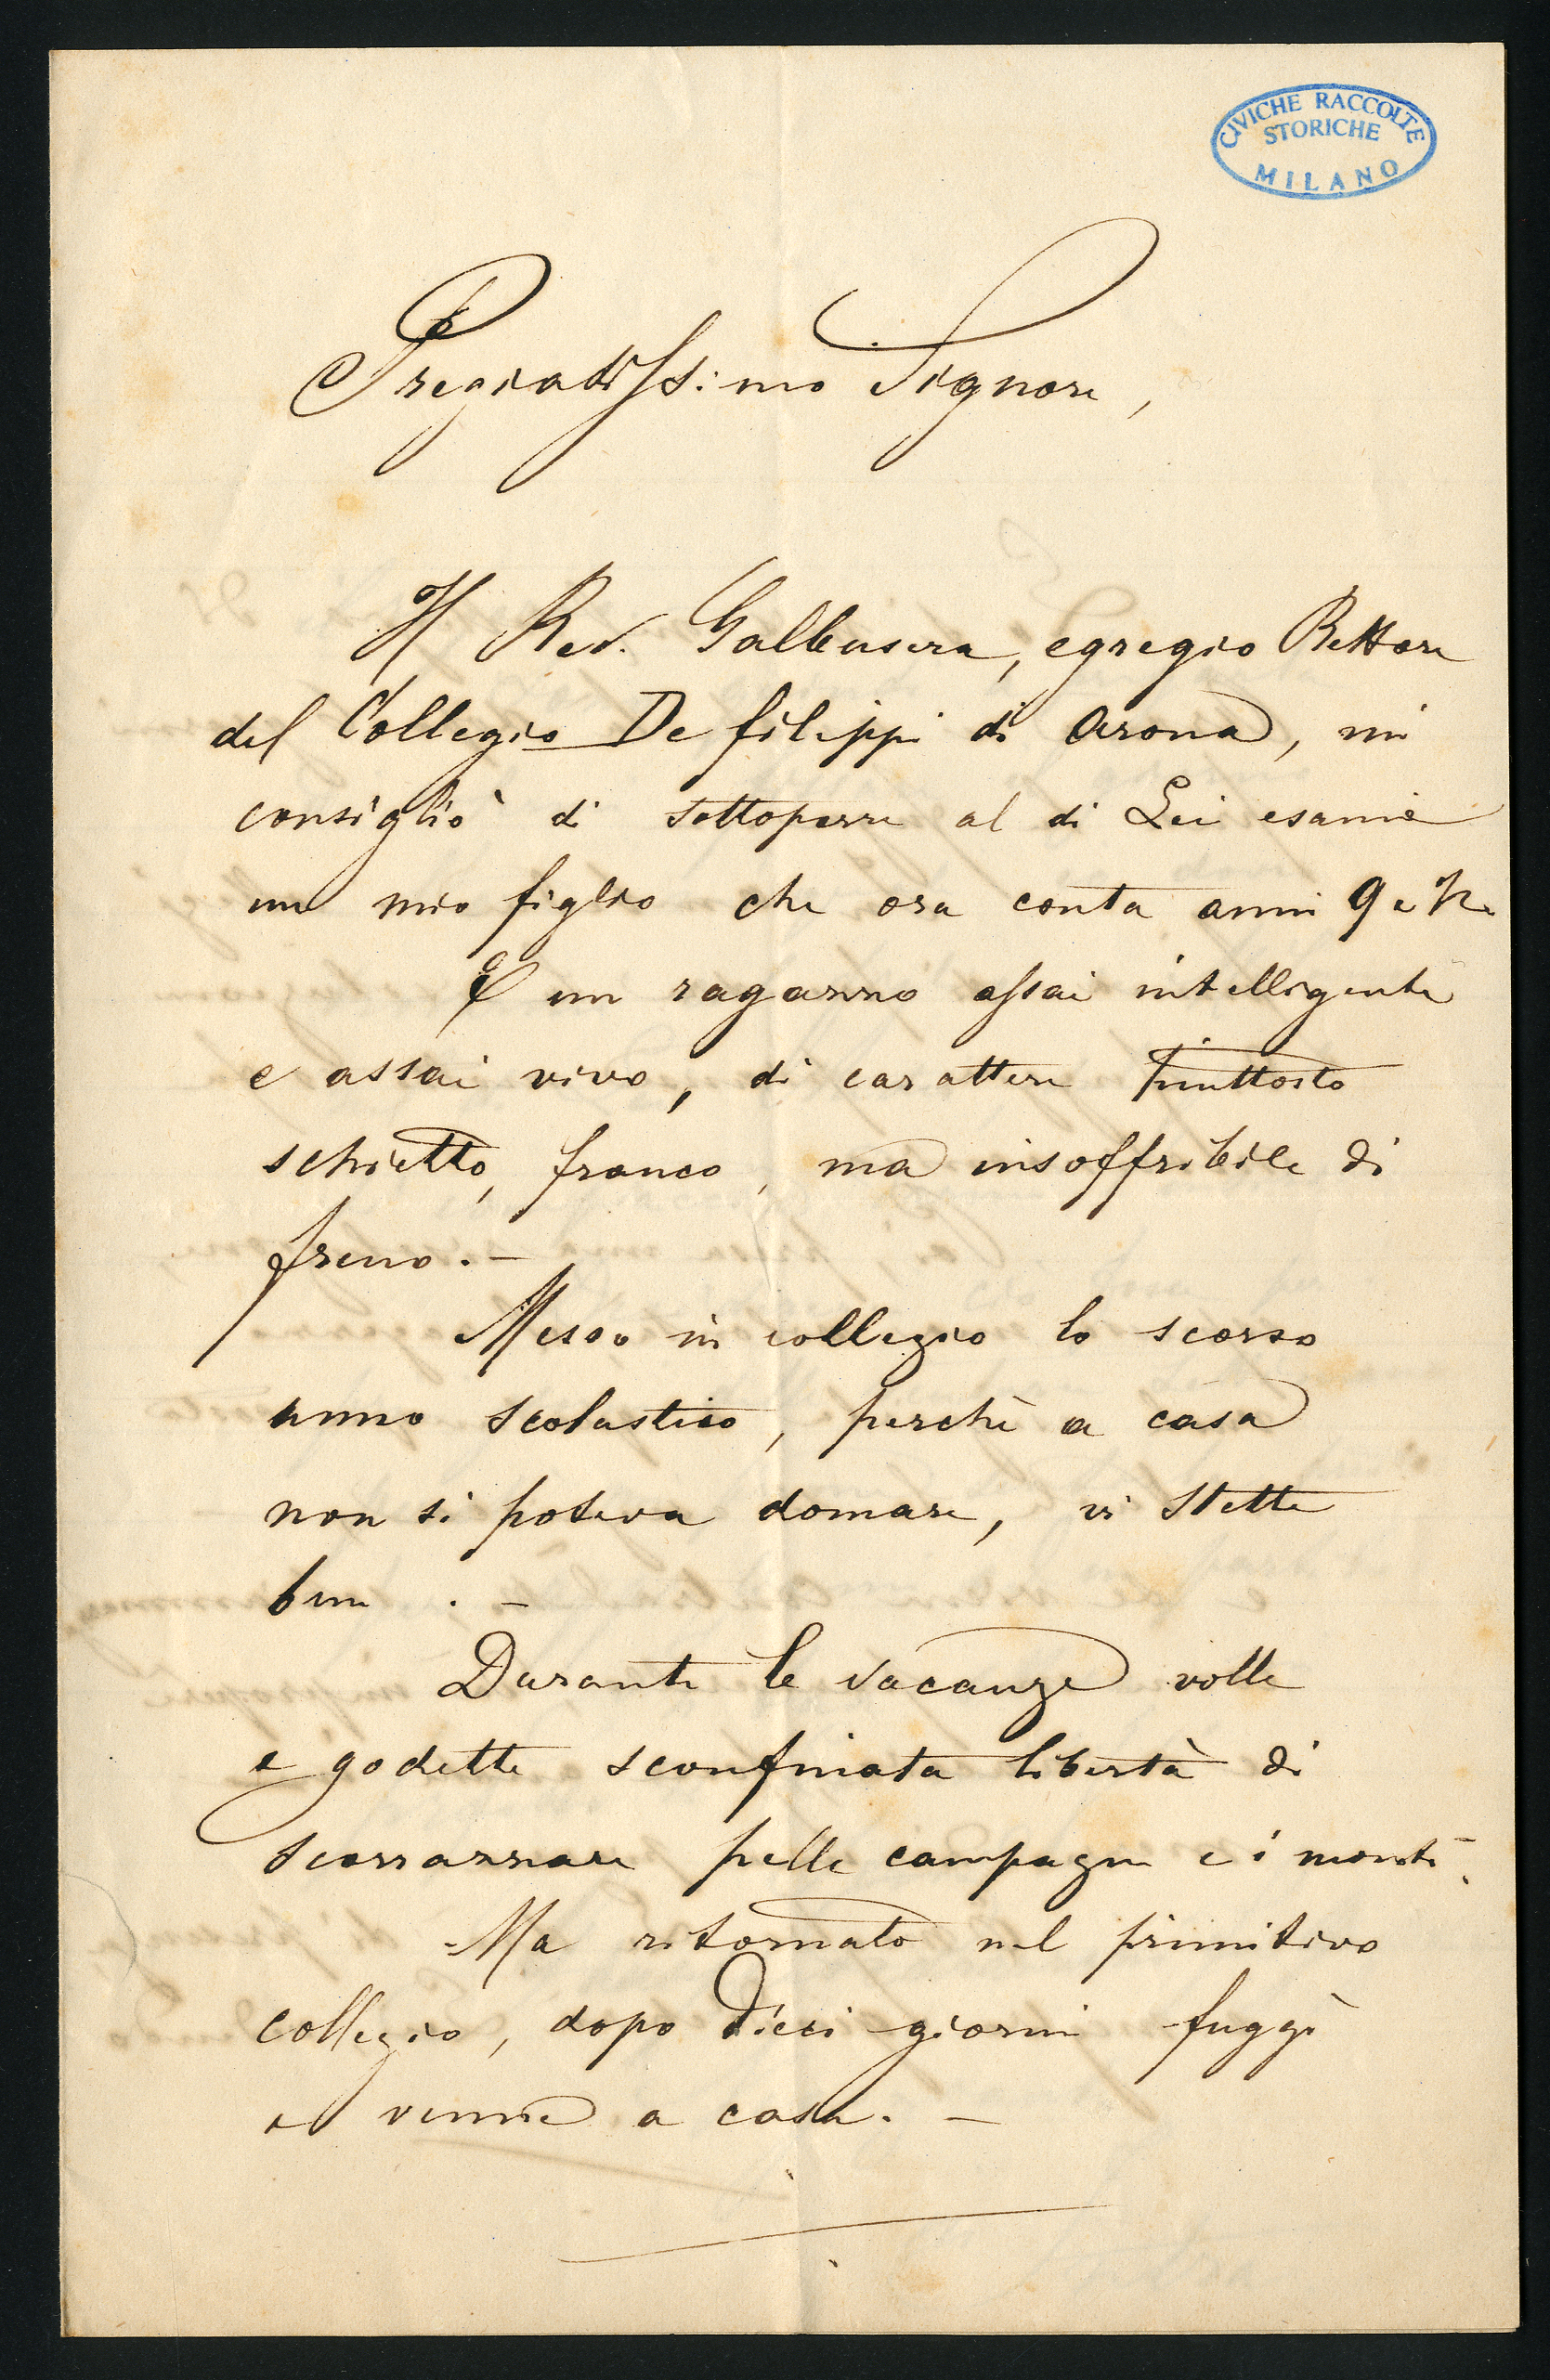 CIVICHE RACCOLTE
STORICHE
MILANO
Pregiatissimo Signore,
Il Rev. Galbusera, egregio Rettore
del Collegio De filippi di Arona, mi
consigliò di sottoporre al di Lei esame
un mio figlio che ora conta anni 9 e ½.
È un ragazzo assai intelligente
e assai vivo, di carattere piuttosto
schietto, franco, ma insoffribile di
freno. -
Messo in collegio lo scorso
anno scolastico, perchè a casa
non si poteva domare, vi stette
bene. -
Durante le vacanze volle
e godette sconfinata libertà di
scorrazzare pelle campagne e i monti.
Ma ritornato nel primitivo
collegio, dopo dieci giorni fuggì
e venne a casa. -